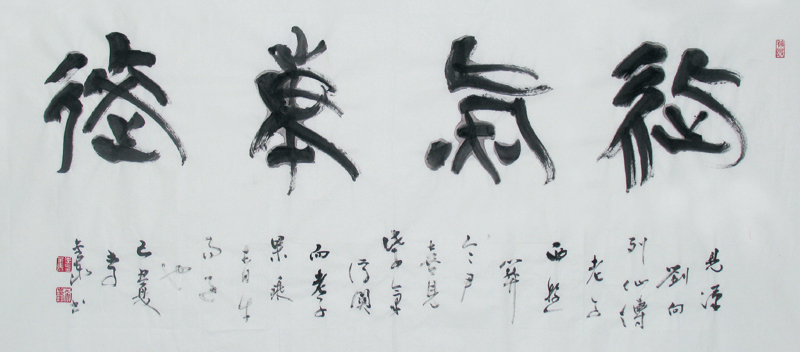 紫氣東徠
見漢
劉向
列仙傳
老子
西遊
關
令尹
喜見
紫氣
浮關
而老子
果乘
青牛
而過
也
己丑夏